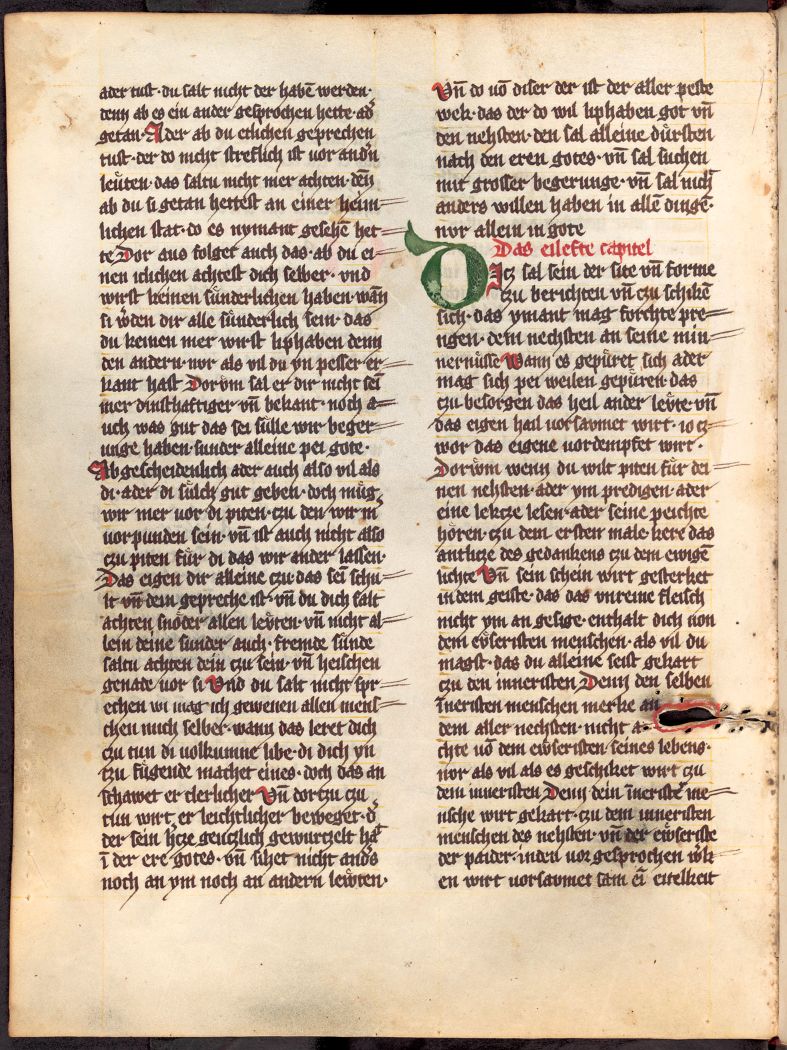 ader tust· du salt nicht der habē werden·
denn ab es ein ander gesprochen hette· ad᷒
getan· Ader ab du etlichen geprechen
tust· der do nicht streflich ist vor and᷒n
leůten· das saltu nicht mer achten· deñ
ab du si getan hettest an einer heim
lichen stat· do es nymant gesehē het
te Dor aus folget auch das· ab du ei
nen iclichen achtest dich selber· vnd
wirst keinen sůnderlichen haben· wañ
si w᷒den dir alle sůnderlich sein· das
du keinen mer wirst liphaben denn
den andern· nor als vil du yn pesser er
kant hast Dorvm sal er dir nicht sei
mer dinsthaftiger vñ bekant· noch a
uch was gut das sei sůlle wir beger
unge haben· sunder alleine pei gote·
Abgescheidenlich ader auch also vil als
di· ader di sůlch gut geben· doch můg
wir mer vor di piten· czu den wir m
vorpunden sein· vñ ist auch nicht also
czu piten fůr di das wir ander lassen·
Das eigen dir alleine czu· das sei schu
lt vñ dein gepreche ist· vñ du dich salt
achten snoder allen leẘten· vñ nicht al
lein deine sunder auch· fremde sůnde
saltu achten dein czu sein· vñ heischen
genade vor si Vnd du salt nicht spr
echen wi mag ich gewenen allen mens
chen mich selber· wann das leret dich
czu tun di volkumne libe· di dich yn
czu fůgende machet eines· doch das an
schawet er clerlicher Vñ dorczu czu
tun wirt er leichtlicher beweget· d᷒
der sein hcze genczlich gewurczelt hat
ī der ere gotes· vñ sihet nicht and᷒s
noch an ym noch an andern leẘten·
Vñ do vō diser der ist der aller peste
wek· das der do wil liphaben got vñ
den nehsten· den sal alleine důrsten
nach den eren gotes· vñ sal suchen
mit grosser begerunge· vñ sal nich
anders willen haben in allē dingē·
nor allein in gote
Das eilefte capitel
DIcz sal sein der site vñ forme
czu berichten vñ czu schikē
sich· das ymant mag forchte pre
ngen· dem nechsten an seine min
nernůsse Wann es gepůret sich ader
mag sich pei weilen gepůren· das
czu besorgen das heil ander leẘte· vñ
das eigen hail vorsavmet wirt· io cz
wor das eigene vordempfet wirt·
Dorẘm wenn du wilt piten fůr dei
nen nehsten· ader ym predigen· ader
eine lekcze lesen· ader seine peichte
hŏren· czu dem ersten male· kere das
antlicze des gedankens czu dem ewigē
lichte Vñ sein schein wirt gesterket
in dem geiste· das das vnreine fleisch
nicht ym an gesige· enthalt dich von
dem eẘseristen menschen· als vil du
magst· das du alleine seist gekart
czu den inneristen Denn den selben
īneristen menschen merke an
dem aller nechsten· nicht a
chte vō dem eẘseristen seines lebens·
nor als vil als es geschiket wirt czu
dem inneristen Denn dein īneristē me
nsche wirt gekart· czu dem inneristen
menschen des nehsten· vñ der eẘseriste
der paider· in den vorgesprochen w᷒k
en wirt vorsavmet sam ei eitelkeit